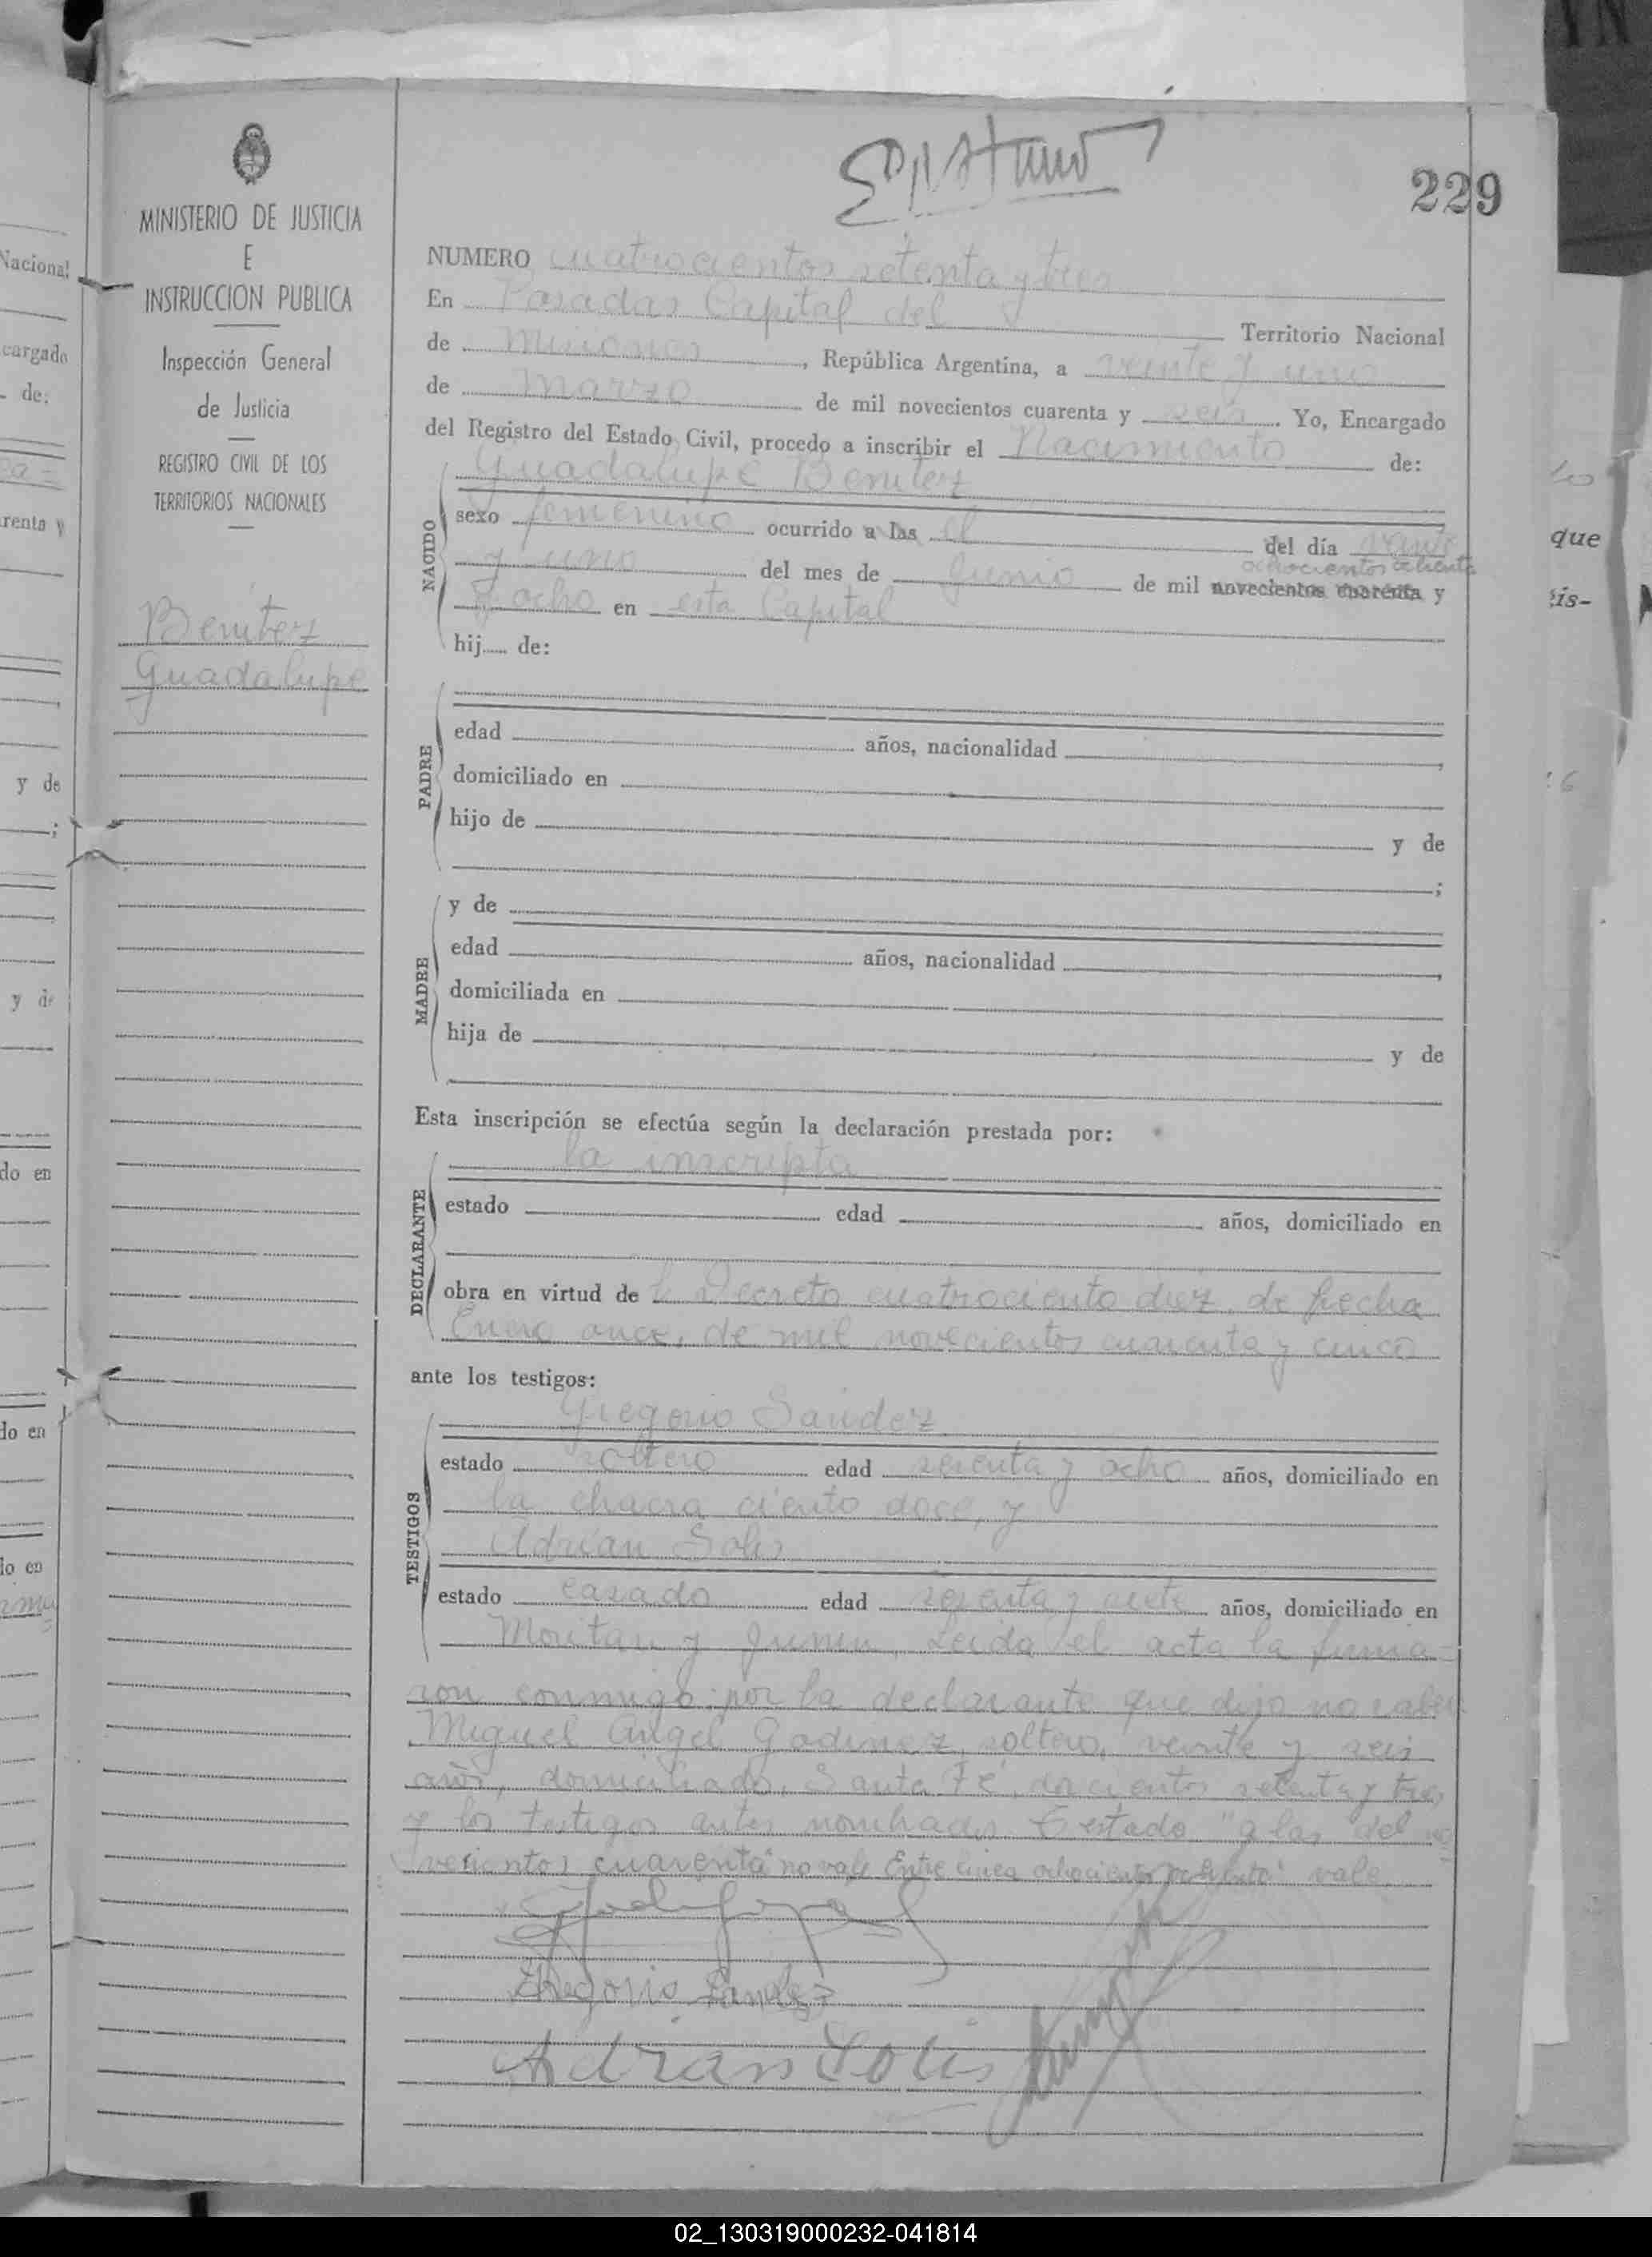 229
MINISTERIO DE JUSTICIA
E
INSTRUCCION PUBLICA
Inspección General
de Justicia
REGISTRO CIVIL DE LOS
TERRITORIOS NACIONALES
Benitez
Guadalupe
NUMERO cuatrocientos setenta y tres
En Posadas Capital del Territorio Nacional
de Misiones, República Argentina, a veinte y uno
de marzo de mil novecientos cuarenta y seis. Yo, Encargado
del Registro del Estado Civil, procedo a inscribir el Nacimiento de:
Guadalupe Benitez
NACIDO
sexo femenino ocurrido a las el del día veinte
y uno del mes de Junio de mil novecientos cuarenta y
ochocientos ochenta
y ocho en esta Capital
hij de:
PADRE
edad años, nacionalidad ,
domiciliado en
hijo de y de
;
MADRE
y de
edad años, nacionalidad ,
domiciliada en
hija de y de
Esta inscripción se efectúa según la declaración prestada por:
DECLARANTE
la inscripta
estado edad años, domiciliado en
obra en virtud de Decreto cuatrociento diez de fecha
Enero once, de mil novecientos cuarenta y cinco
ante los testigos:
TESTIGOS
Gregorio Sandez
estado soltero edad sesenta y ocho años, domiciliado en
la chacra ciento doce, y
Adrian Solis
estado casado edad sesenta y siete años, domiciliado en
y Junin Leida el acta la firma=
ron conmigo por la declarante que dijo no saber
Miguel Angel Godinez, soltero, veinte y seis
años, domiciliado, Santa Fé, doscientos setenta y tres
y los testigos antes nombrados Testado "a las" del no
vecientos cuarenta" no vale Entre linea ochocientos ochenta" vale
Gregorio Sandez
Adrian Solis
Nacional
cargado
de:
renta y
y de
;
y de
do en
do en
do en
que
is-
02_130319000232-041814